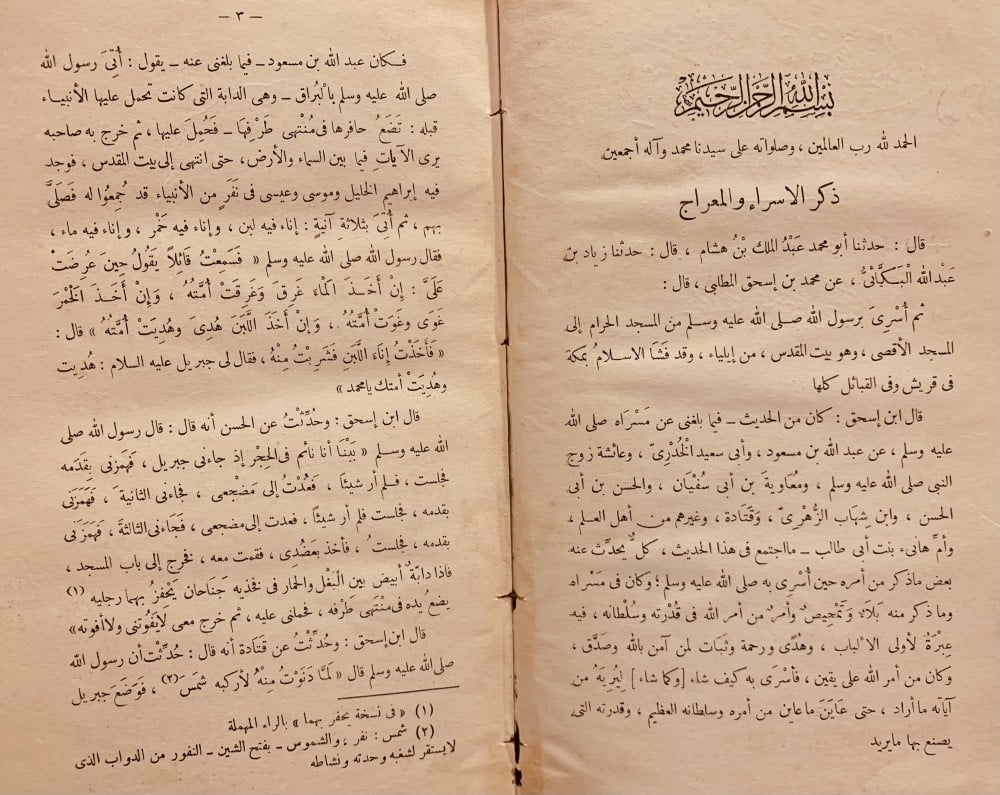 بسم الله الرحمن الرحيم
الحمد لله رب العالمين ، وصلواته على سيدنا محمد وآله أجمعين
ذكر الاسراء والمعراج
قال : حدثنا أبو محمد عَبْدُ الملك بْنُ هشام ، قال : حدثنا زياد بن
عَبدالله الْبَكَّائىُّ ، عن محمد بن إسحق المطلبى ، قال :
ثم أُسْرِىَ برسول الله صلى الله عليه وسلم منَ المسجد الحرام إلى
المسجد الأقصى ، وهو بيت المقدس ، من إيلياء ، وقد فَشَا الاسلامُ بمكة
فى قريش وفى القبائل كلها
قال ابن إسحق : كان من الحديث ــ فيما بلغنى عن مَسْرَاه صلى الله
عليه وسلم ، عن عبد الله بن مسعود ، وأبى سعيد الْخُدْرِىّ ، وعائشة زوج
النبى صلى الله عليه وسلم ، ومُعَاوية بن أبى سُفْيَان ، والحسن بن أبى
الحسن ، وابن شِهَاب الزُّهْرِىّ ، وَقَتَادة ، وغيرهم من أهل العلم ،
وأمِّ هانىء بنت أبى طالب ــ مااجتمع فى هذا الحديث ، كلٌّ يحدِّث عنه
بعض ماذكر من أمره حين أُسْرِى به صلى الله عليه وسلم ؛ وكان فى مَسْراه
وما ذكر منه بَلاَءٌ وَتَمْحِيصٌ وأمرٌ من أمر الله فى قدْرته وسُلْطانه ، فيه
عِبْرَةٌ لأولى الألباب ، وهُدًى ورحمة وثَبَات لمن آمن بالله وصَدَّق ،
وكان من أمر الله على يقين ، فأسْرَى به كيف شاء [وكما شاء] لِيُرِيَهُ من
آياته ماأراد ، حتى عَايَنَ ماعاين من أمره وسلطانه العظيم ، وقدرته التى
يصنع بها مايريد
ــ ٣ ــ
فكان عبد الله بن مسعود ــ فيما بلغنى عنه ــ يقول : أُتِىَ رسول الله
صلى الله عليه وسلم بالْبُرَاق ــ وهى الدابة التى كانت تحمل عليها الأنبياء
قبله : تَضَعُ حافرها فى مُنْتَهى طَرْفِهَا ــ فَحُمِلَ عليها ، ثم خرج به صاحبه
يرى الآيات فيما بين السماء والأرض، حتى انتهى إلى بيت المقدس ، فوجد
فيه إبراهيم الخليل وموسى وعيسى فى نَفَرٍ من الأنبياء قد جُمِعُوا له فَصَلَّى
بهم ، ثم أُتِىَ بثلاثةِ آنيةٍ : إناء فيه لبن ، وإناء فيه خَمْر ، وإناء فيه ماء ،
فقال رسول الله صلى الله عليه وسلم « فَسَمِعْتُ قَائِلاً يَقُولُ حِينَ عُرِضَتْ
عَلَىَّ : إِنْ أَخَذَ الْمَاءَ غَرِقَ وَغَرِقَتْ أُمَّتُهُ ، وَإِنْ أَخَذَ الْخَمْرَ
غَوَى وَغَوَتْ أُمَّتُهُ ، وَإِنْ أَخَذَ اللَّبَنَ هُدِىَ وَهُدِيَتْ أُمَّتُهُ » قال :
« فَأَخَذْتُ إنَاءَ اللَّبَنِ فَشَرِبْتُ مِنْهُ ، فقال لى جبريل عليه السلام : هُدِيت
وهُدِيَتْ أمتك يامحمد »
قال ابن إسحق : وحُدِّثْتُ عن الحسن أنه قال : قال رسول الله صلى
الله عليه وسلم « بَيْنَا أنا نائم فى الْحِجْر إذ جاءنى جبريل ، فهَمَزنى بِقَدَمه
فجلست ، فلم أر شيئًا ، فَعُدْتُ إلى مَضْجَعى ، فجاءنى الثانيةَ ، فَهَمَزَنى
بقدمه ، فجلست فلم أر شيئًا ، فعدت إلى مضجعى ، فَجَاءَنى الثالثةَ ، فَهَمَزَنى
بقدمه ، فجلستُ ، فأخذ بعَضُدِى ، فقمت معه ، فخرج إلى باب المسجد ،
فاذا دابَّةٌ أبيض بين الْبَغْلِ والحمار فى فخذيه جَنَاحان يَحْفِزُ بهما رجليه (١)
يضعُ يده فى مُنْتَهَى طَرْفه ، فحملنى عليه ، ثم خرج معى لاَيَفُوتنى ولاأفوته »
قال ابن إسحق : وحُدِّثْتُ عن قَتَادة أنه قال : حُدِّثْتُ أن رسول الله
صلى الله عليه وسلم قال « لَمَّا دَنَوْتُ مِنْهُ لأركبه شَمَسَ (٢) ، فَوَضَعَ جبريل
(١) « فى نسخة يحفر بهما » بالراء المهملة
(٢) شمس : نفر ، والشموس ــ بفتح الشين ــ النفور من الدواب الذى
لايستقر لشغبه وحدته ونشاطه